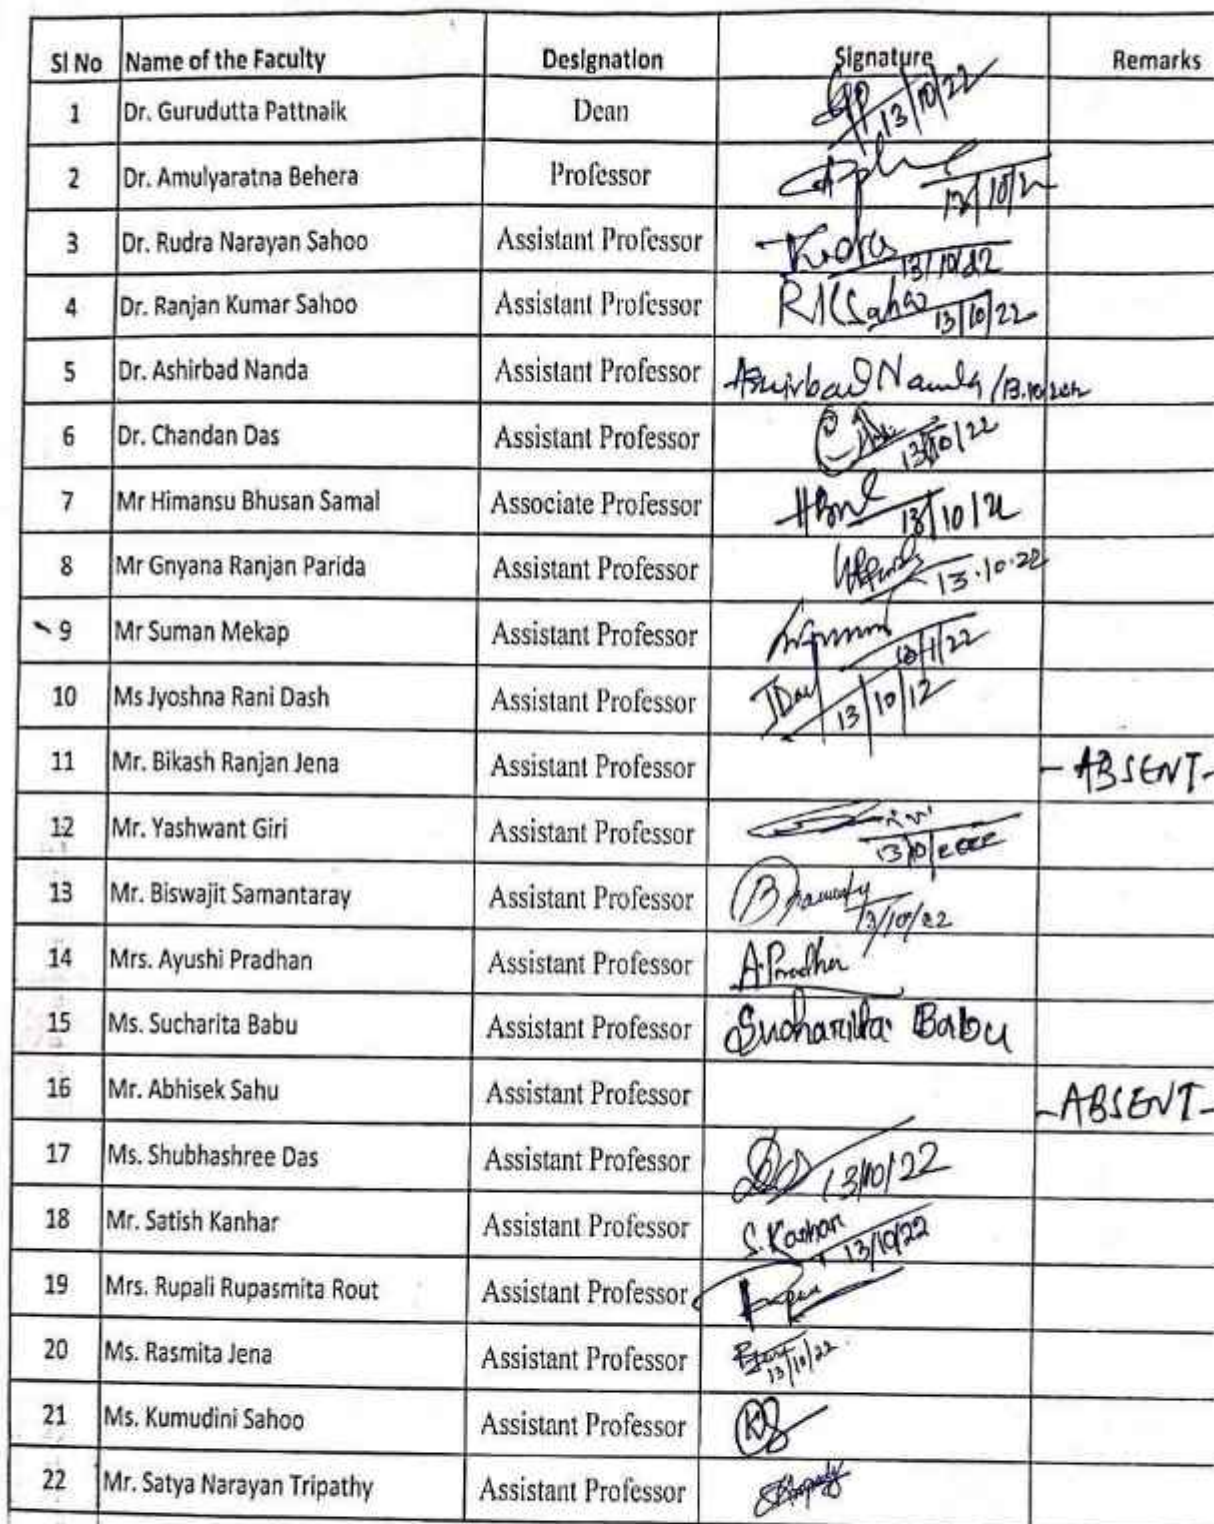 Sl No Name of the Faculty Designation Signature Remarks
1 Dr. Gurudutta Pattnaik Dean 13/10/22
2 Dr. Amulyaratna Behera Professor
3 Dr. Rudra Narayan Sahoo Assistant Professor 13/10/22
4 Dr. Ranjan Kumar Sahoo Assistant Professor RKSahoo 13/10/22
5 Dr. Ashirbad Nanda Assistant Professor Ashirbad Nanda
6 Dr. Chandan Das Assistant Professor 13/10/22
7 Mr Himansu Bhusan Samal Associate Professor
8 Mr Gnyana Ranjan Parida Assistant Professor 13.10.22
9 Mr Suman Mekap Assistant Professor
10 Ms Jyoshna Rani Dash Assistant Professor JDash 13/10/12
11 Mr. Bikash Ranjan Jena Assistant Professor - ABSENT -
12 Mr. Yashwant Giri Assistant Professor
13 Mr. Biswajit Samantaray Assistant Professor 13/10/22
14 Mrs. Ayushi Pradhan Assistant Professor A.Pradhan
15 Ms. Sucharita Babu Assistant Professor Sucharita Babu
16 Mr. Abhisek Sahu Assistant Professor - ABSENT -
17 Ms. Shubhashree Das Assistant Professor 13/10/22
18 Mr. Satish Kanhar Assistant Professor S. Kanhar 13/10/22
19 Mrs. Rupali Rupasmita Rout Assistant Professor
20 Ms. Rasmita Jena Assistant Professor 13/10/22
21 Ms. Kumudini Sahoo Assistant Professor
22 Mr. Satya Narayan Tripathy Assistant Professor